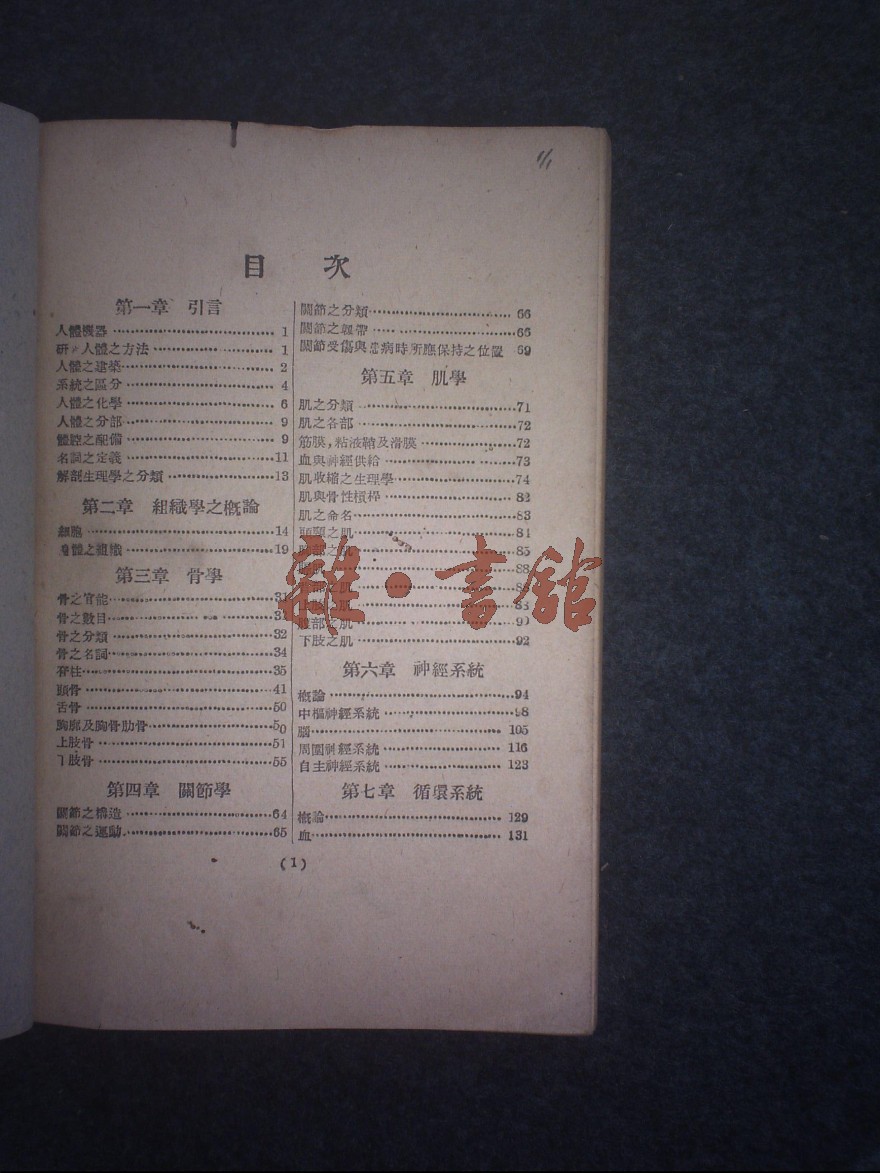 目 次
第一章 引言
人體機器 1
研 人體之方法 1
人體之建築 2
系統之區分 4
人體之化學 6
人體之分部 9
體腔之配備 9
名詞之定義 11
解剖生理學之分類 13
第二章 組織學之槪論
細胞 14
體之組織 19
第三章 骨學
骨之官能 31
骨之數目
骨之分類 32
骨之名詞 34
脊柱 35
頭骨 41
舌骨 50
胸廓及胸骨肋骨 50
上肢骨 51
下肢骨 55
第四章 關節學
關節之構造 64
關節之運動 65
關節之分類 66
關節之韌帶 66
關節受傷與患病時所應保持之位置 69
第五章 肌學
肌之分類 71
肌之各部 72
筋膜,粘液鞘及滑膜 72
血與神經供給 73
肌收縮之生理學 74
肌與骨性槓桿 82
肌之命名 83
頭顱之肌 84
部之肌 85
88
之肌
上肢 肌 88
腹部之肌
下肢之肌 92
第六章 神經系統
槪論 94
中樞神經系統 98
腦 105
周圍神經系統 116
自主神經系統 123
第七章 循環系統
槪論 129
血 131
(1)
雜·書館